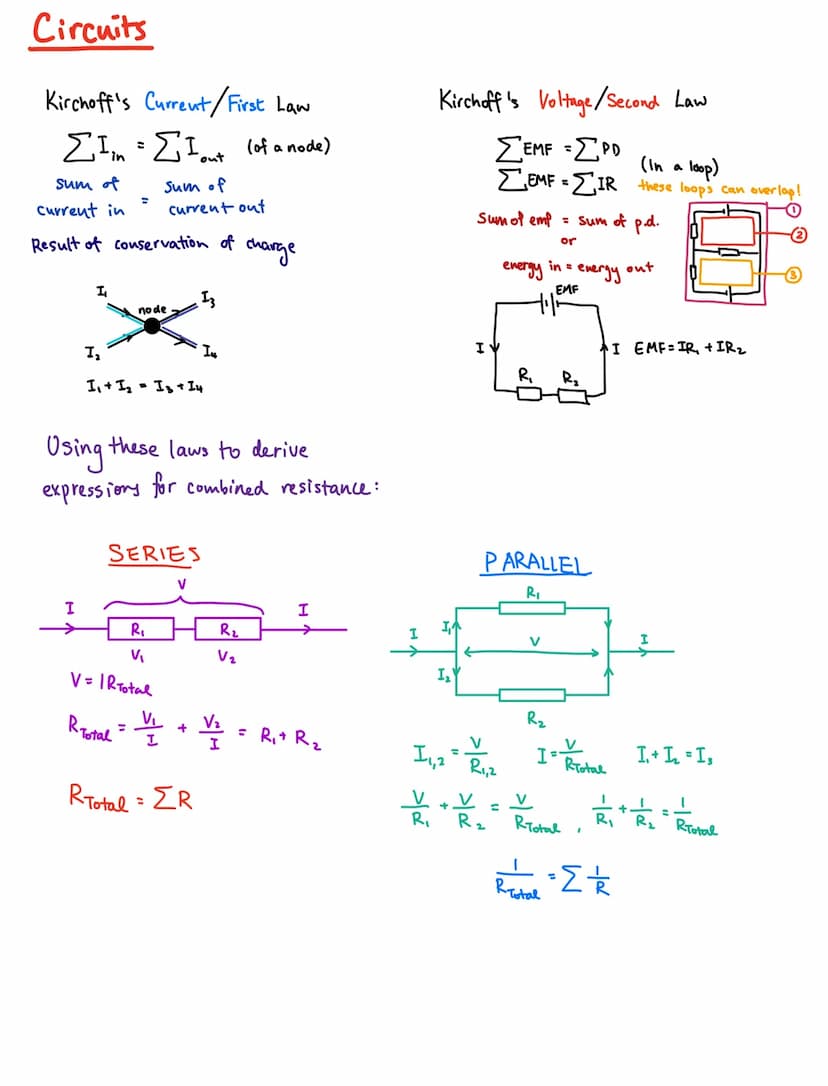 Circuits
Kirchoff's Current/First Law
∑I_in = ∑I_out (of a node)
sum of current in = sum of current out
Result of conservation of charge
I₁
I₂
node
I₃
I₄
I₁ + I₂ = I₃ + I₄
Kirchoff's Voltage/Second Law
∑EMF = ∑PD
∑EMF = ∑IR
(In a loop)
these loops can overlap!
1
2
3
Sum of emf = sum of p.d.
or
energy in = energy out
EMF
I
I
R₁
R₂
EMF = IR₁ + IR₂
Using these laws to derive
expressions for combined resistance:
SERIES
V
I
I
R₁
R₂
V₁
V₂
V = IR_Total
R_Total = V₁/I + V₂/I = R₁ + R₂
R_Total = ∑R
PARALLEL
R₁
I
I₁
V
I
I₂
R₂
I₁,₂ = V/R₁,₂
I = V/R_Total
I₁ + I₂ = I₃
V/R₁ + V/R₂ = V/R_Total , 1/R₁ + 1/R₂ = 1/R_Total
1/R_Total = ∑ 1/R